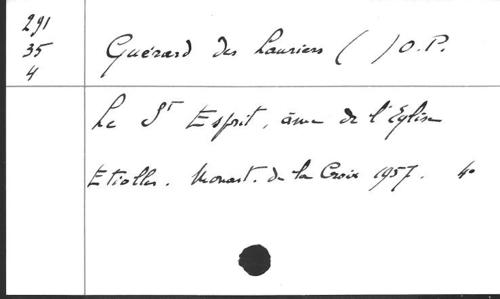 291
35
4
Guérard des Lauriers ( ) O.P.
Le St Esprit, âme de l'Eglise
Etiolles. Monast. de la Croix 1957. 4°